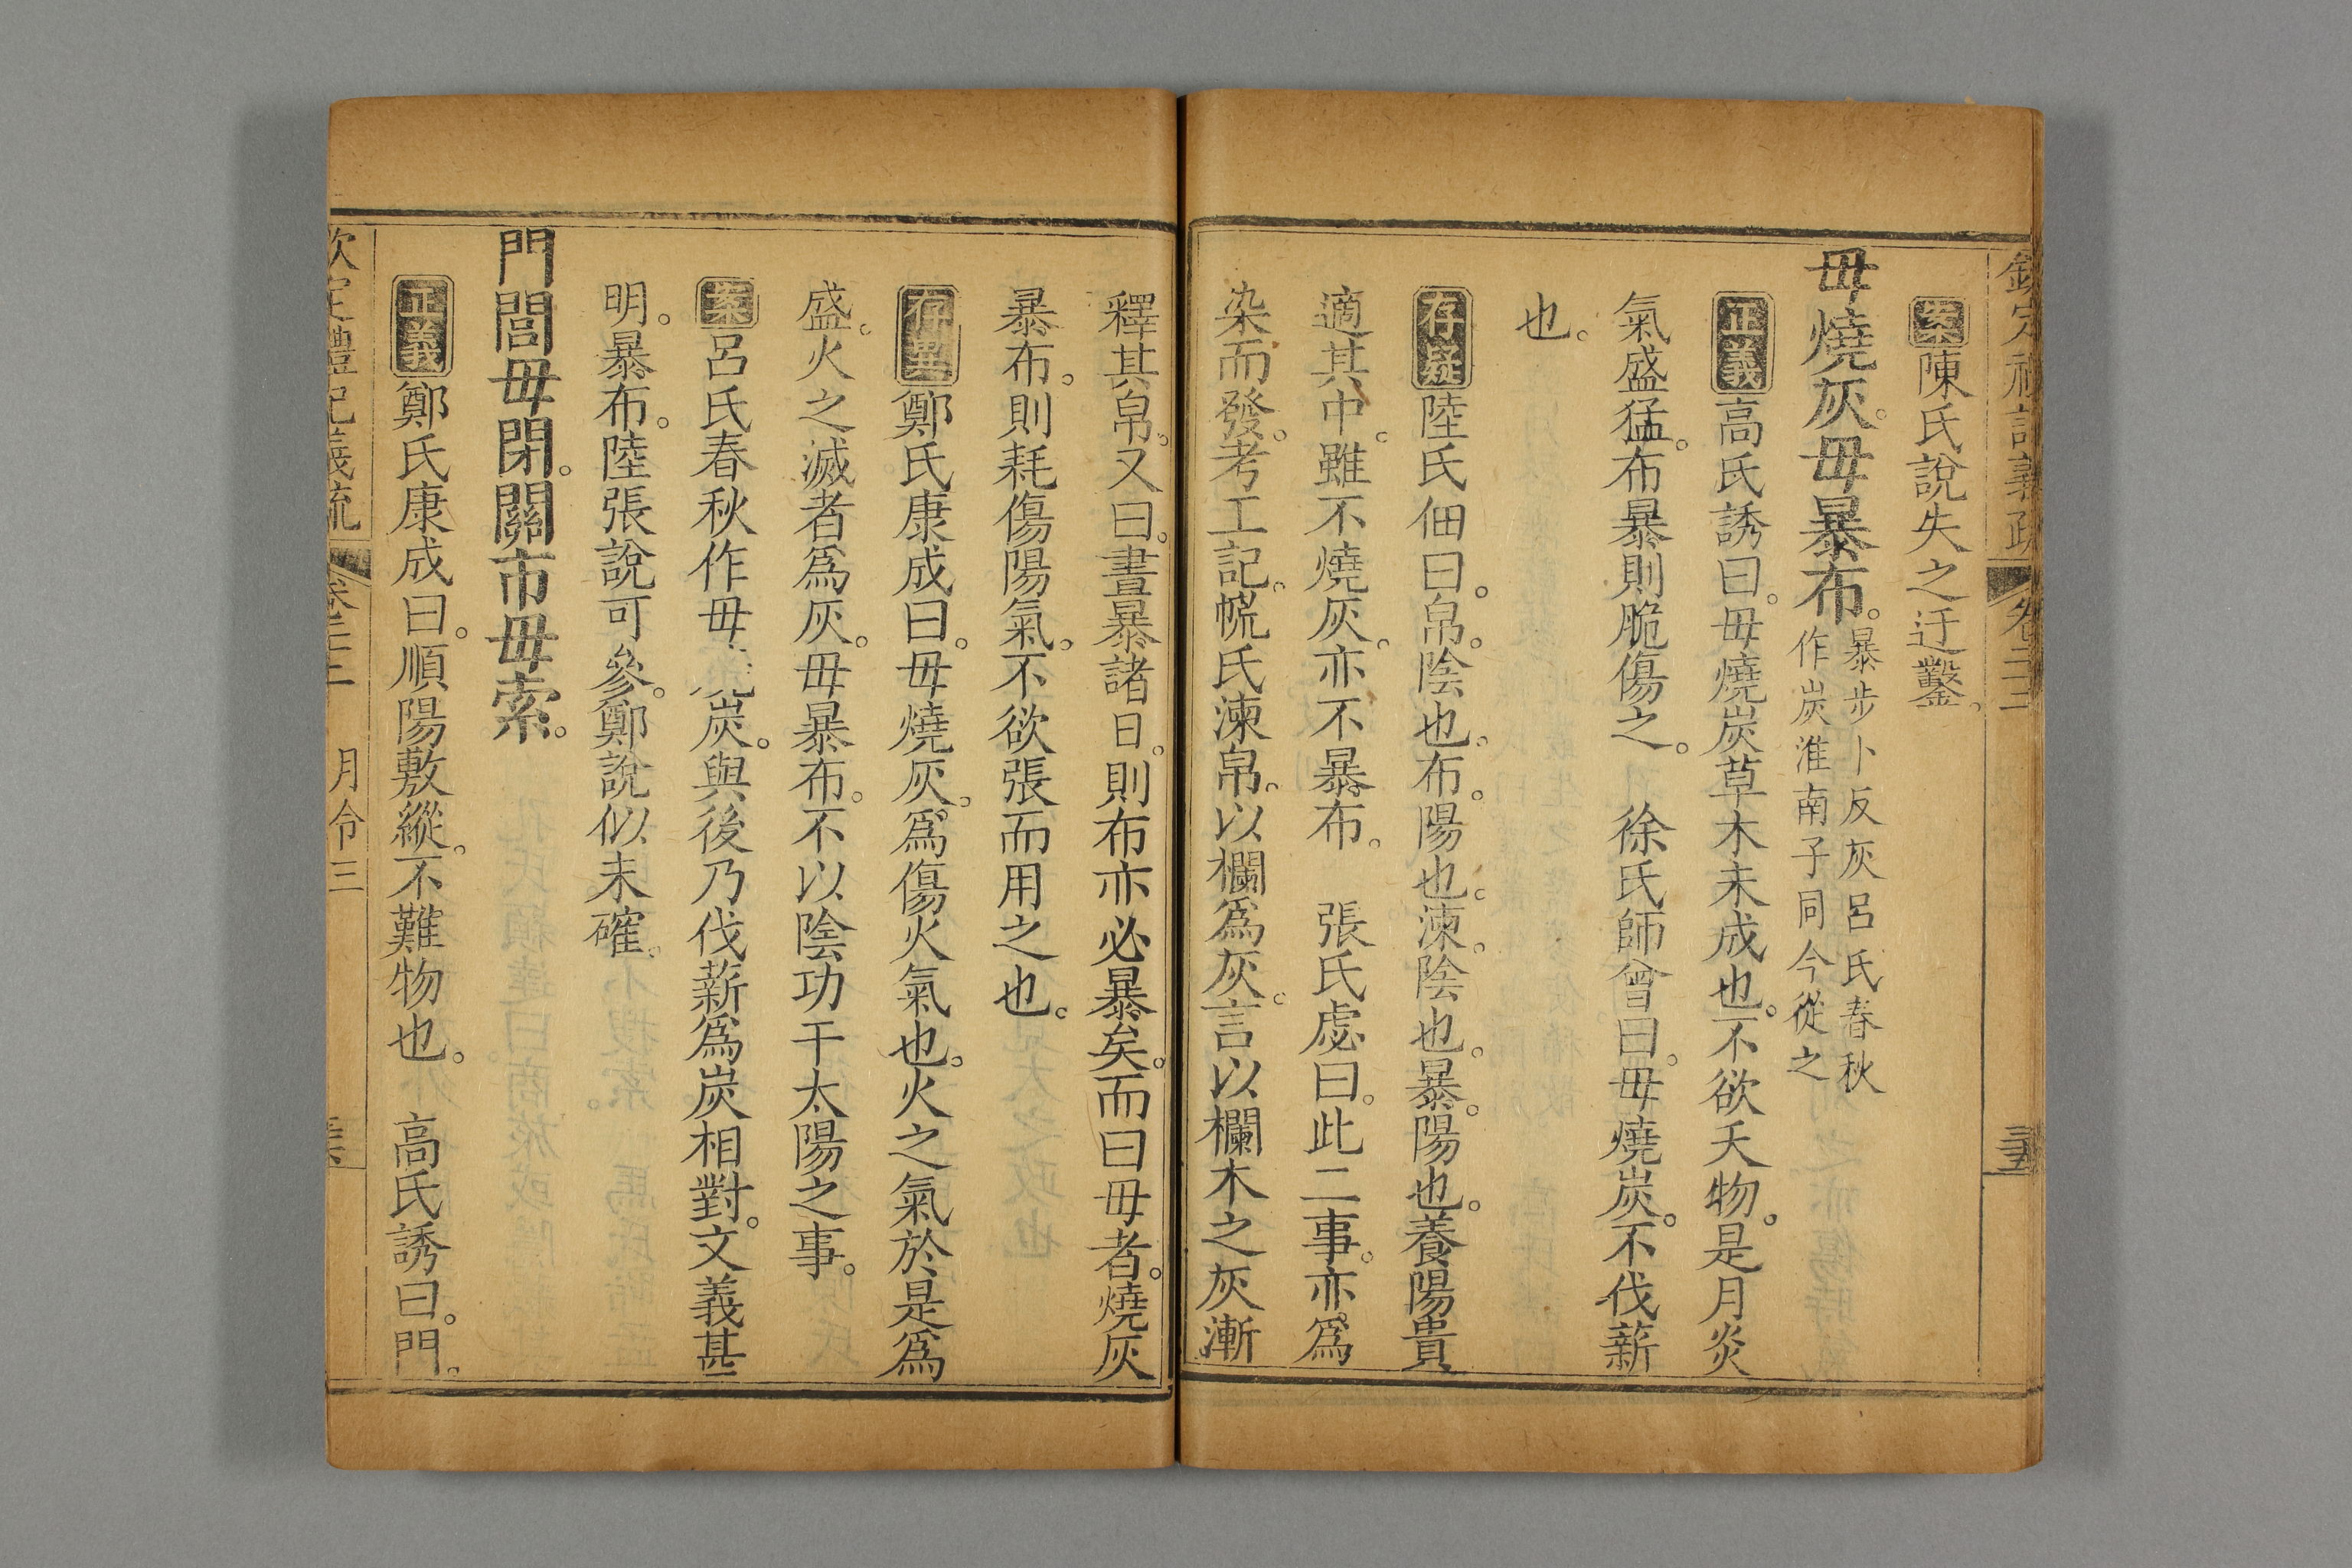 欽定禮記義疏 卷二十二 三五
案陳氏說失之迂鑿。
毋燒灰。毋暴布。暴步卜反灰呂氏春秋
作炭淮南子同今從之
正義高氏誘曰。毋燒炭草木未成也。不欲夭物。是月炎
氣盛猛。布暴則脆傷之。 徐氏師曾曰。毋燒炭。不伐薪
也。
存疑陸氏佃曰。帛。陰也。布。陽也。湅。陰也。暴。陽也。養陽貴
適其中。雖不燒灰。亦不暴布。 張氏虙曰。此二事。亦爲
染而發。考工記。㡛氏湅帛。以欄爲灰。言以欄木之灰漸
釋其帛。又曰。晝暴諸日。則布亦必暴矣。而曰毋者。燒灰
暴布。則耗傷陽氣。不欲張而用之也。
存異鄭氏康成曰。毋燒灰。爲傷火氣也。火之氣於是爲
盛。火之滅者爲灰。毋暴布。不以陰功干太陽之事。
案呂氏春秋作毋炭。與後乃伐薪爲炭相對。文義甚
明。暴布。陸張說可參。鄭說似未確。
門閭毋閉。關市毋索。
正義鄭氏康成曰。順陽敷縱。不難物也。 高氏誘曰。門。
欽定禮記義疏 卷二十二 月令三